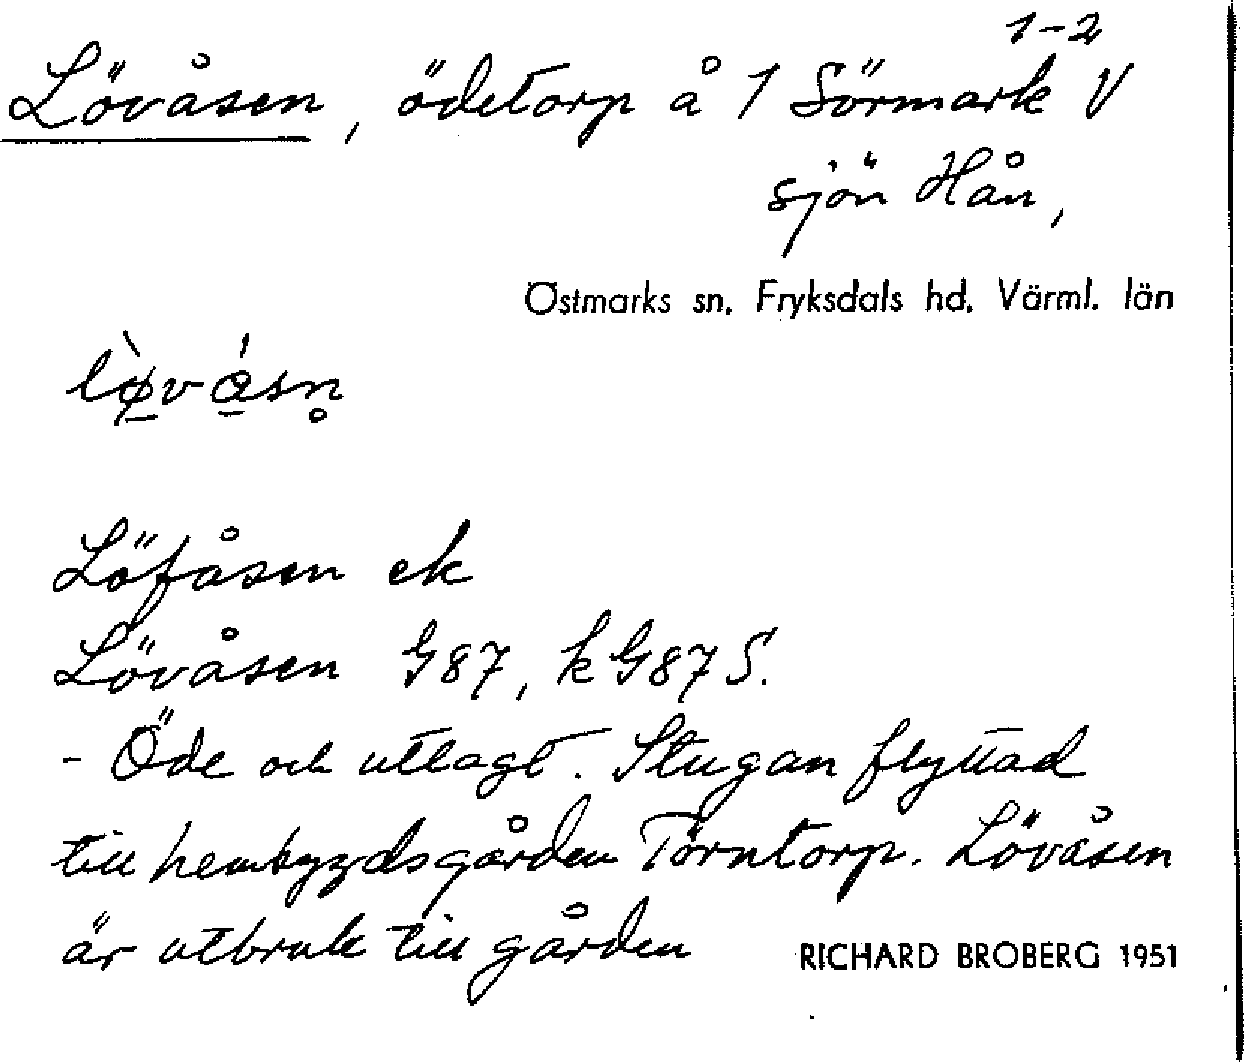 1-2
Lövåsen, ödetorp å 1 Sörmark V
sjön Hån,
Östmarks sn. Fryksdals hd. Värml. län
lø̀vásn̥
Löfåsen ek
Lövåsen G87, k G87 S.
- Öde och utlagt. Stugan flyttad
till hembygdsgården Törntorp. Lövåsen
är utbruk till gården
RICHARD BROBERG 1951